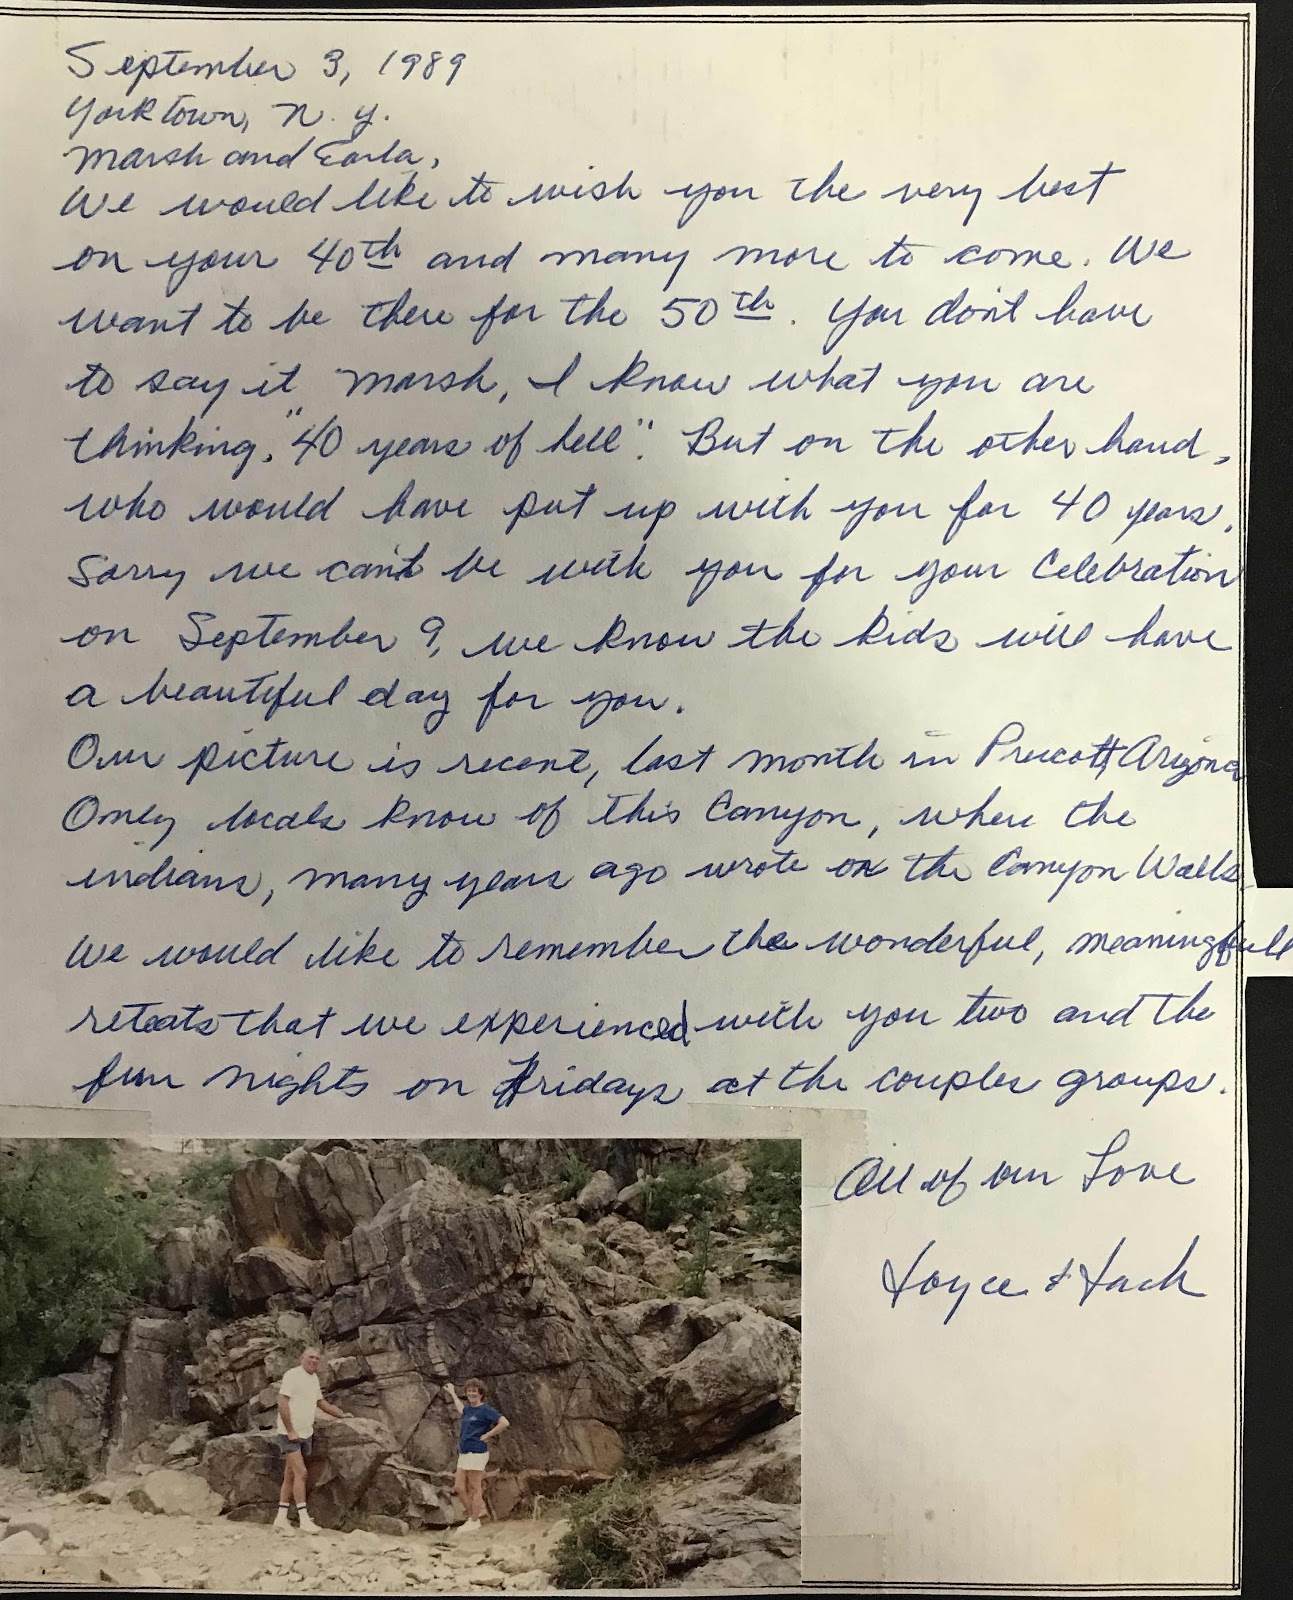 September 3, 1989
Yorktown, N.Y.
Marsh and Earla,
We would like to wish you the very best
on your 40th and many more to come. We
want to be there for the 50th. You don't have
to say it Marsh, I know what you are
thinking, "40 years of hell". But on the other hand,
who would have put up with you for 40 years.
Sorry we can't be with you for your Celebration
on September 9, we know the kids will have
a beautiful day for you.
Our picture is recent, last month in Prescott, Arizona
Only locals know of this Canyon, where the
indians, many years ago wrote on the Canyon Walls.
We would like to remember the wonderful, meaningfull
reteats that we experienced with you two and the
fun nights on Fridays at the couples groups.
All of our Love
Joyce & Jack